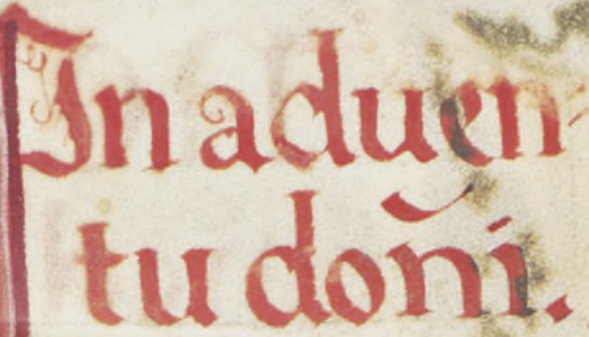 In aduen-
tu don̄i.